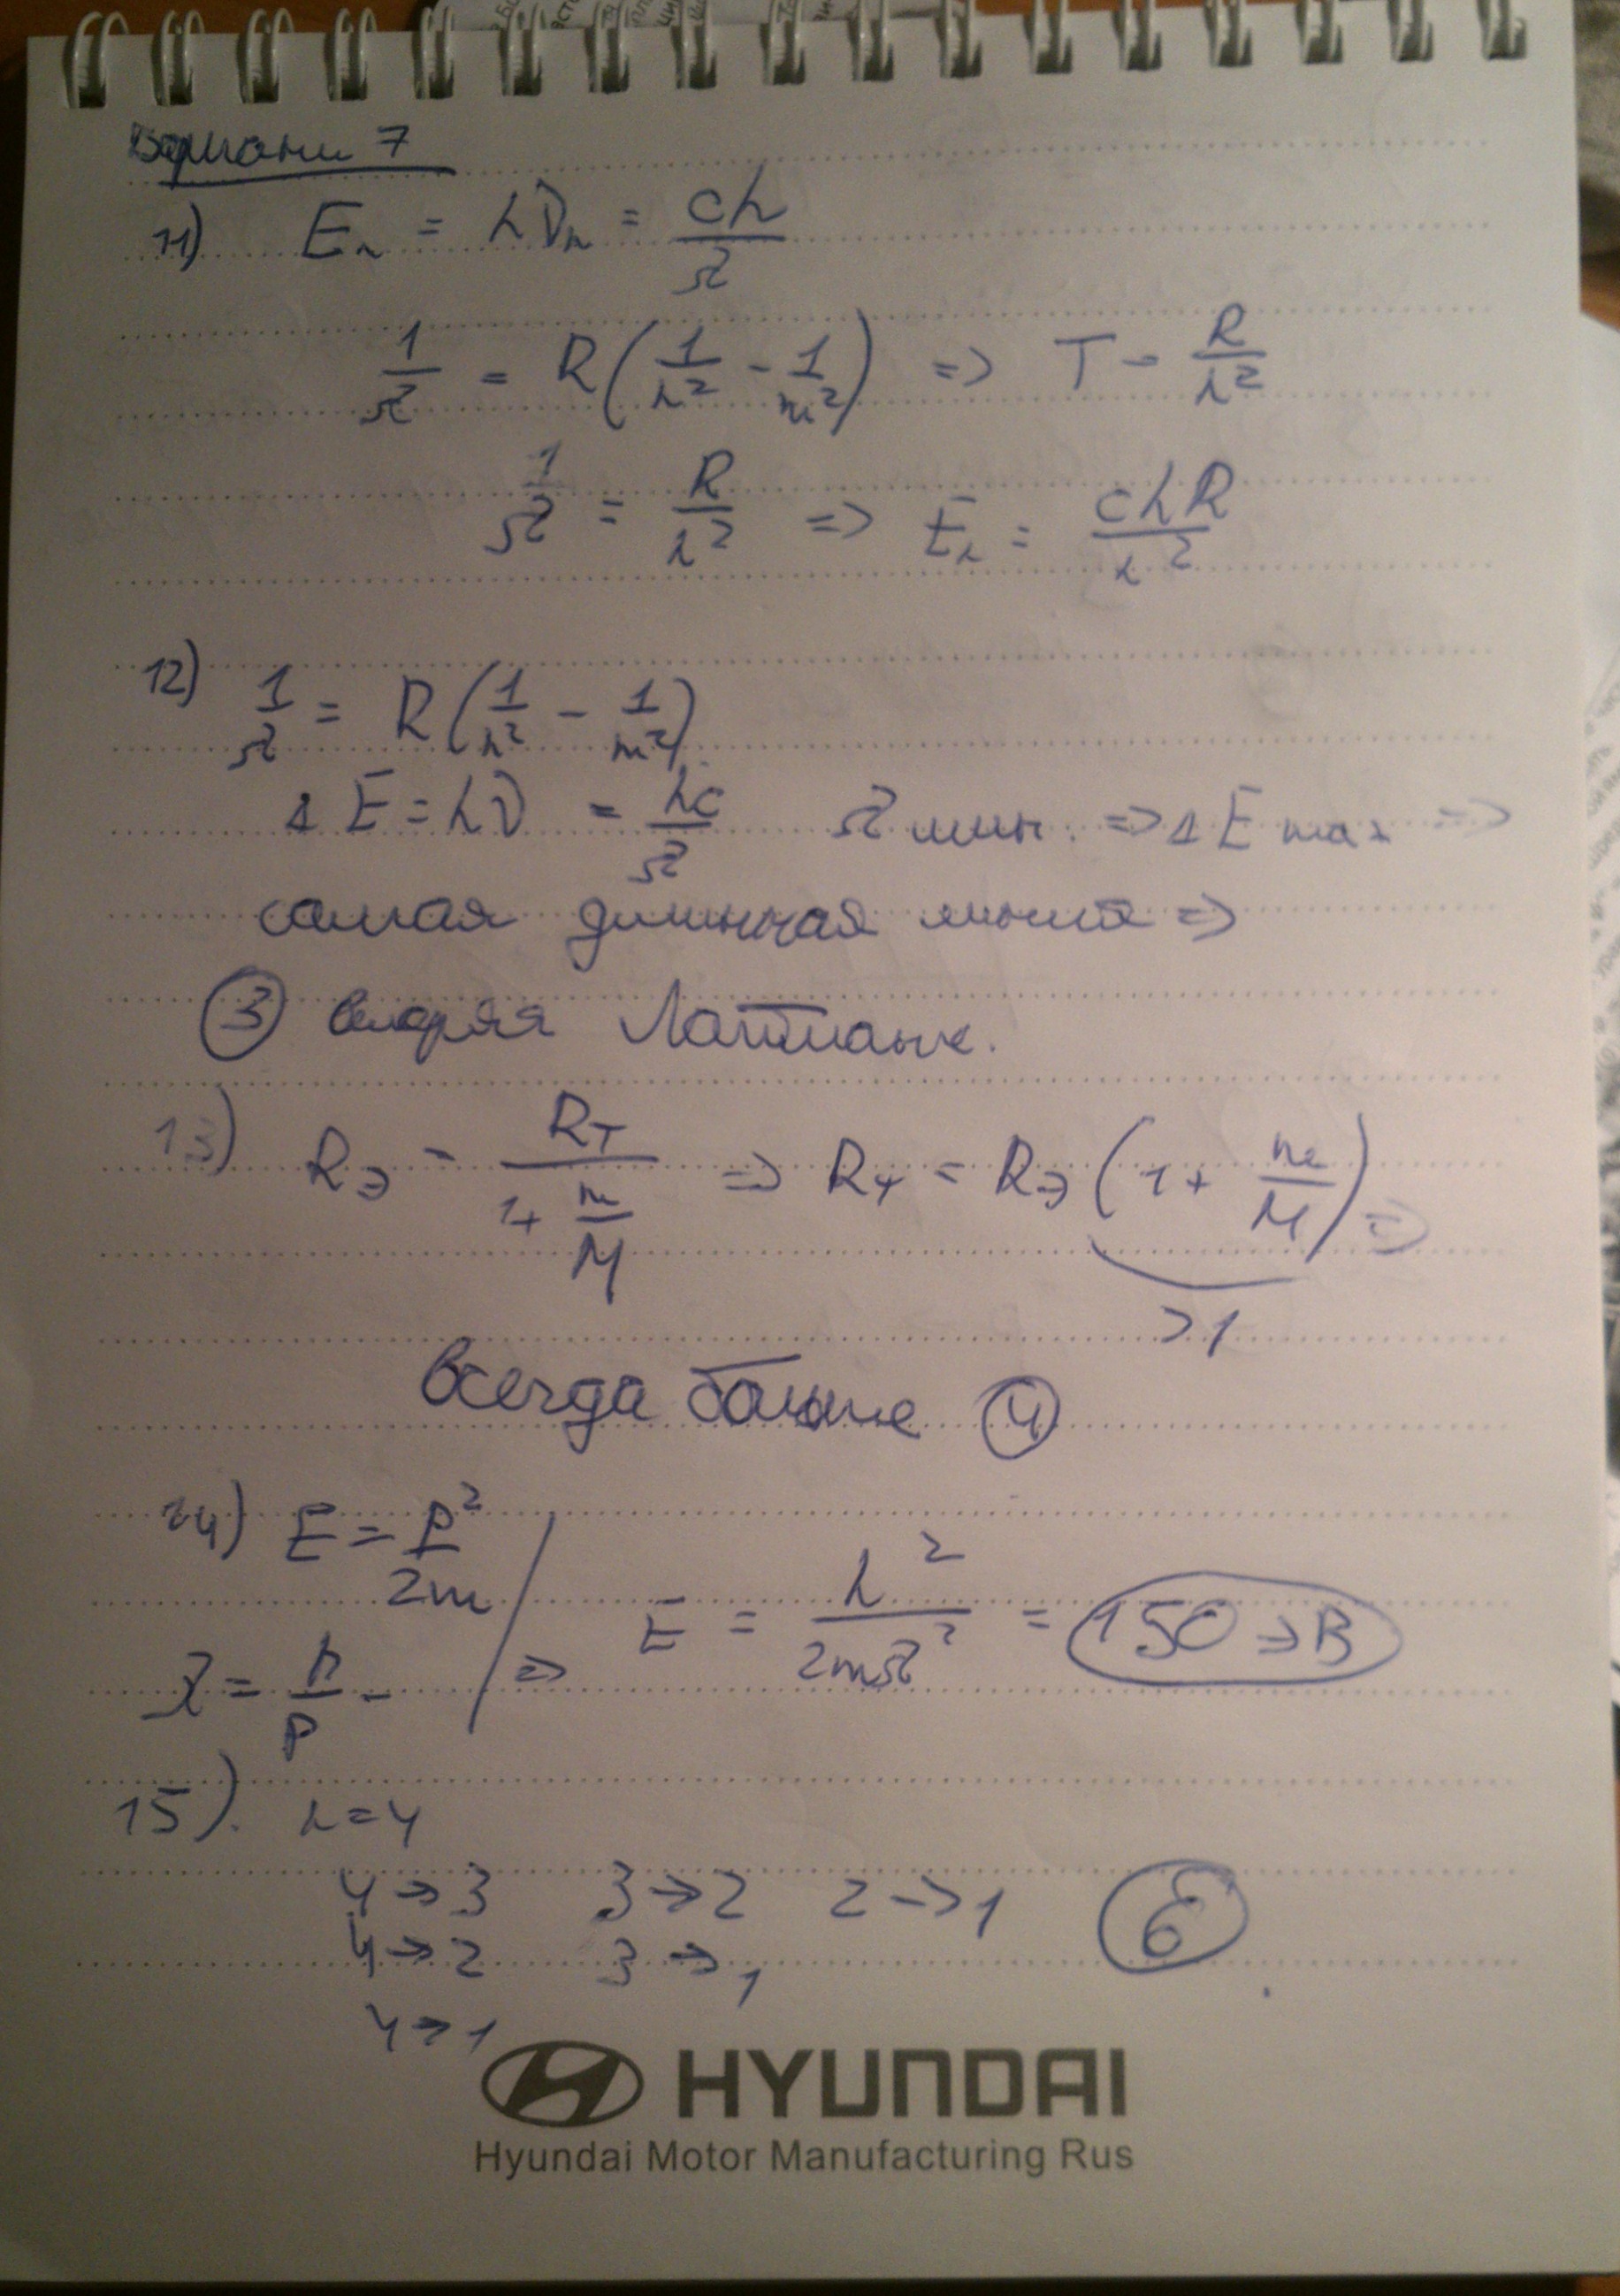 Вариант 7
11) Eₙ = hνₙ = ch/λ
1/λ = R(1/n² - 1/m²) => T - R/n²
1/λ = R/n² => Eₙ = chR/n²
12) 1/λ = R(1/n² - 1/m²)
ΔE = hν = hc/λ λ мин. => ΔE max =>
самая длинная линия =>
3 вторая Лаймана.
13) Rэ = Rт/(1+ m/M) => Rт = Rэ(1+ m/M) =>
>1
всегда больше 4
14) E = P²/2m
λ = h/p - => E = h²/2mλ² = 150 эВ
15). n=4
4→3 3→2 2→1 6
4→2 3→1
4→1
HYUNDAI
Hyundai Motor Manufacturing Rus